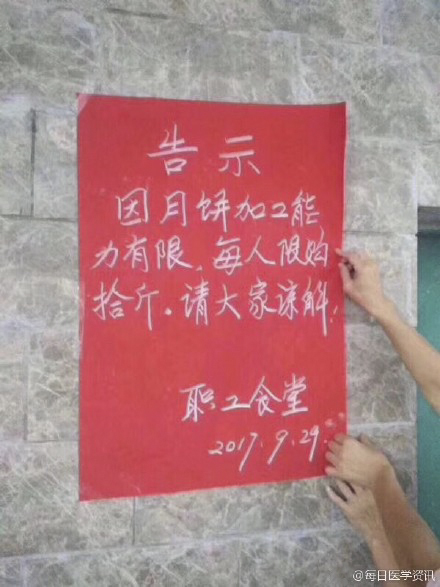 告示
因月饼加工能
力有限，每人限购
拾斤。请大家谅解！
职工食堂
2017.9.29.
@每日医学资讯